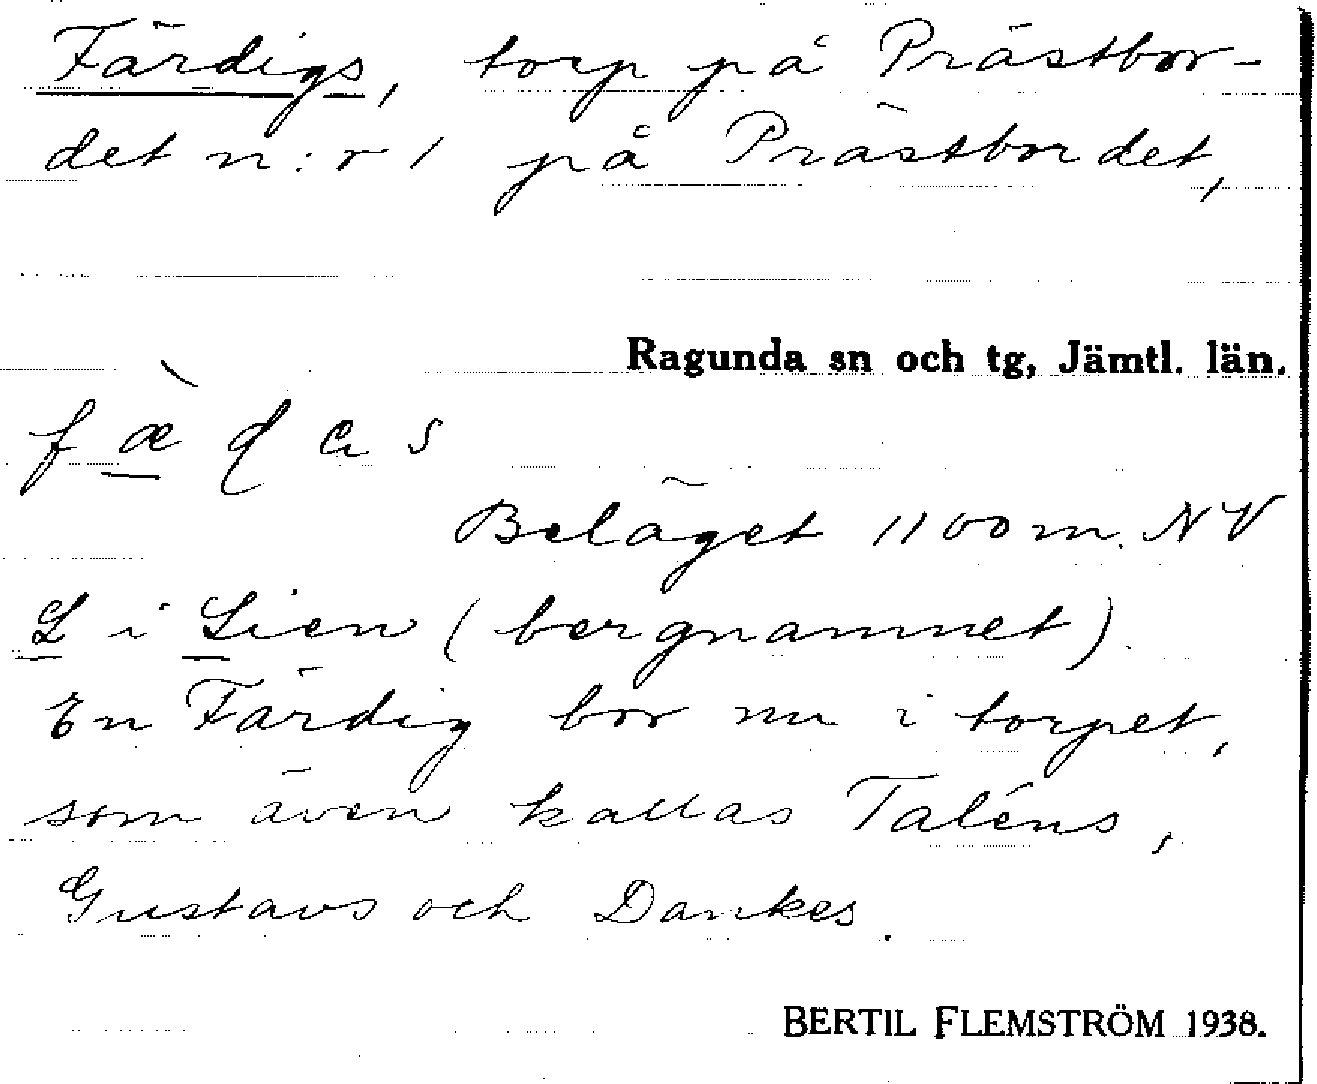 Färdigs, torp på Prästbor-
det n:r 1 på Prästbordet,
Ragunda sn och tg, Jämtl. län.
Beläget 1100 m. NV
L i Lien (bergnamnet)
En Färdig bor nu i torpet,
som även kallas Taléns,
Gustavs och Dankes.
BERTIL FLEMSTRÖM 1938.